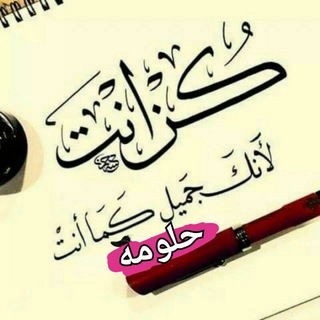 كن أنت
لأنك جميل كما أنت
حلومه